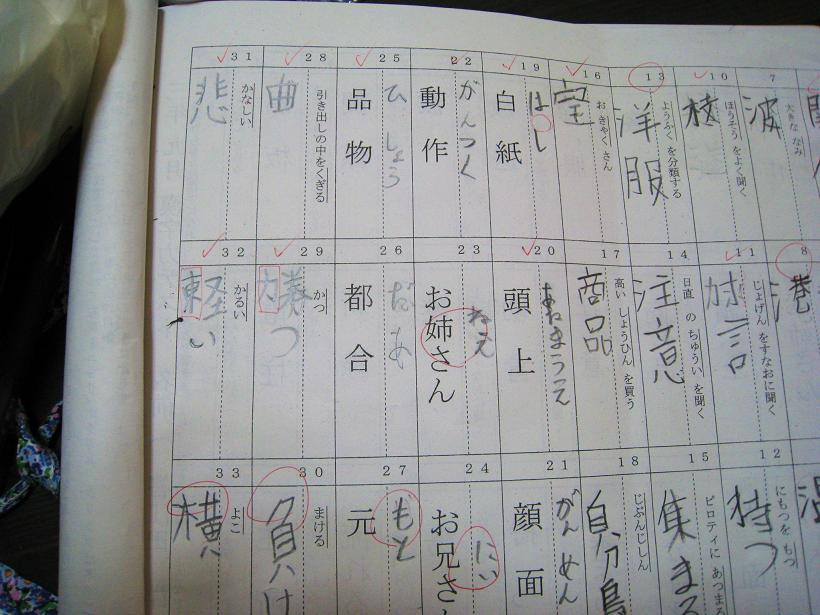 7
大きな なみ
波
8
港
10
ほうそう をよく聞く
11
じょげん をすなおに聞く
言
12
にもつを もつ
持つ
13
ようふく を分類する
洋服
14
日直 の ちゅうい を聞く
注意
15
ピロティに あつまる
集まる
16
おきゃくさん
17
高い しょうひん を買う
商品
18
じぶんじしん
自分
19
はし
白紙
20
あたまうえ
頭上
21
がんめん
顔面
22
がんつく
動作
23
ねえ
お姉さん
24
にい
お兄さ
25
ひしょう
品物
26
都合
27
もと
元
28
引き出しの中をくぎる
曲
29
かつ
つ
30
まける
負け
31
かなしい
悲
32
かるい
軽い
33
よこ
横